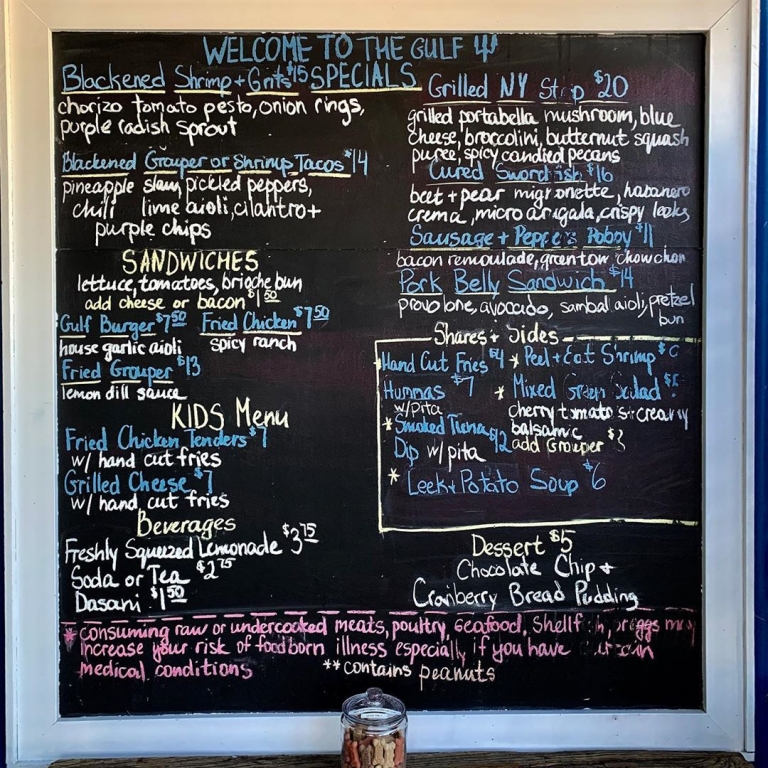 WELCOME TO THE GULF
SPECIALS
Blackened Shrimp + Grits $15
chorizo tomato pesto, onion rings,
purple radish sprout
Blackened Grouper or Shrimp Tacos $14
pineapple slaw, pickled peppers,
chili lime aioli, cilantro +
purple chips
SANDWICHES
lettuce, tomatoes, brioche bun
add cheese or bacon $1.50
Gulf Burger $7.50 Fried Chicken $7.50
house garlic aioli spicy ranch
Fried Grouper $13
lemon dill sauce
KIDS Menu
Fried Chicken Tenders $7
w/ hand cut fries
Grilled Cheese $7
w/ hand cut fries
Beverages
Freshly Squeezed Lemonade $3.75
Soda or Tea $2.75
Dasani $1.50
Grilled NY Strip $20
grilled portabella mushroom, blue
cheese, broccolini, butternut squash
puree, spicy candied pecans
Cured Swordfish $16
beet + pear mignonette, habanero
crema, micro arugala, crispy leeks
Sausage + Peppers Poboy $11
bacon remoulade, green tom chow chow
Pork Belly Sandwich $14
provolone, avocado, sambal aioli, pretzel
bun
Shares + Sides
*Hand Cut Fries $4
Hummas $7
w/ Pita
*Smoked Tuna $12
Dip w/ pita
* Peel + Eat Shrimp
* Mixed Green Salad
cherry tomatoes creamy
balsamic
add Grouper
* Leek + Potato Soup $6
Dessert $5
Chocolate Chip +
Cranberry Bread Pudding
* consuming raw or undercooked meats, poultry, seafood, shellfish, or eggs may
increase your risk of foodborn illness especially if you have certain
medical conditions **contains peanuts